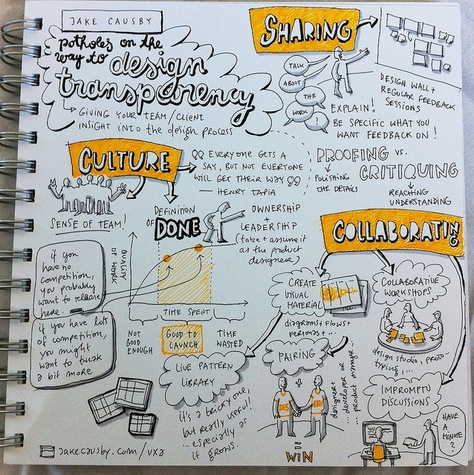 JAKE CAUSBY
potholes on the
way to design
transparency
GIVING YOUR TEAM/CLIENT
INSIGHT INTO the design PROCESS
SHARING
TALK
ABOUT
THE
WORK!
EXPLAIN!
BE SPECIFIC WHAT YOU
WANT FEEDBACK ON!
DESIGN WALL +
REGULAR FEEDBACK
SESSIONS
CULTURE
SENSE OF TEAM!
EVERYONE GETS A
SAY, BUT NOT EVERYONE
WILL GET THEIR WAY
— HENRY TAPIA
PROOFING vs.
CRITIQUING
POLISHING
THE DETAILS
REACHING
UNDERSTANDING
DEFINITION
OF DONE
OWNERSHIP
+
LEADERSHIP
(take + assume it
as the product
designer)
QUALITY
OF WORK
TIME SPENT
NOT
GOOD
ENOUGH
GOOD TO
LAUNCH
TIME
WASTED
if you
have no
competition,
you probably
want to release
here.
if you have lots
of competition,
you might
want to tweak
a bit more
LIVE PATTERN
LIBRARY
it's a tricky one,
but really useful!
... especially as
it grows.
COLLABORATING
CREATE
VISUAL
MATERIAL
diagrams + flows +
personas + ...
COLLABORATIVE
WORKSHOPS
design studio, proto-
typing, ...
PAIRING
designer +
... developer or
... product manager...
= WIN
IMPROMPTU
DISCUSSIONS
HAVE
A
MINUTE
?
jakecausby.com/uxa